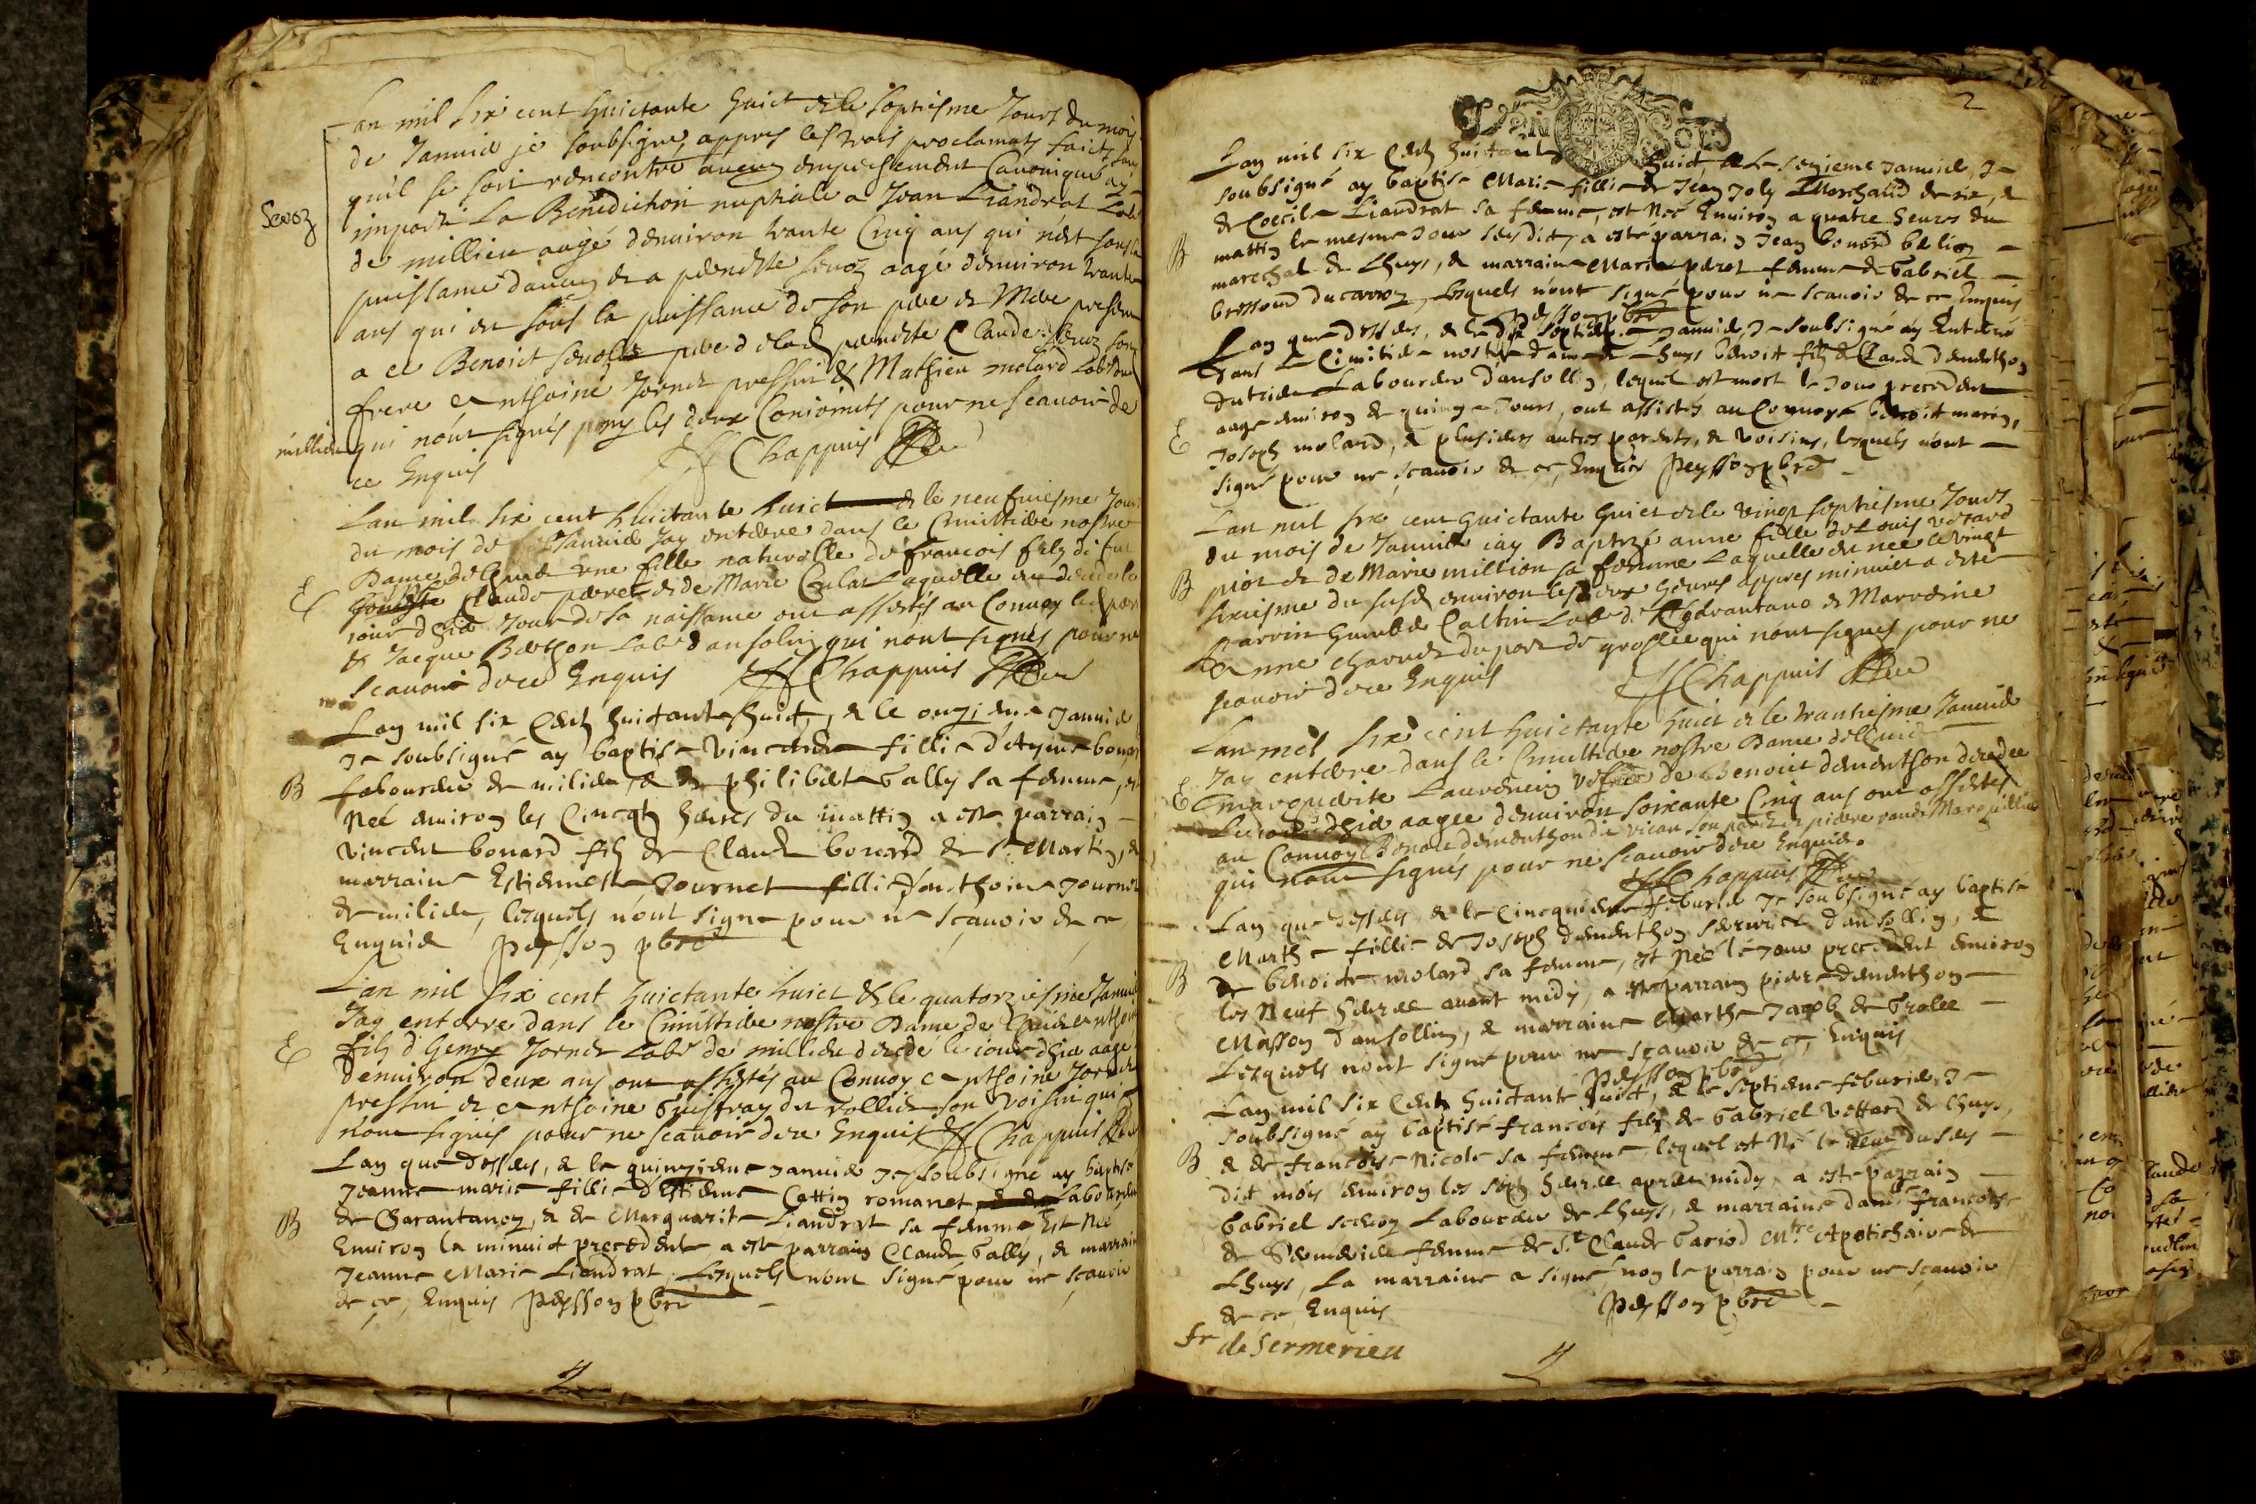 Lan mil six cent huictante huict & le septiesme Jours du mois
de Januier je soubsigne appres les trois proclamats faicts sans
quil se soit rencontre aucun empeschement Canonique ay
imparti La Benediction nuptiale a Joan Liandrat Labr
Sevoz
de millieu aagé denuiron trante Cinq ans qui nest sous la
puissance daucun & a pernette Sevoz aagé denuiron trante
ans qui est sous la puissance de son pere & Mere presents
a ce Benoict Sevoz pere de lad pernette Claude Sevoz son
frere Anthoine Jornet pressin & Mathieu molard Labr
millieu
qui nont signés pnts les deux Conioincts pour ne scauoir de
ce Enquis Chappuis
Lan mil six cent huictante huict & le neufuiesme Jour
du mois de Januier Jay enterre dans le Cimistiere nostre
Dame de Lhuis une fille naturelle de francois filz de feu
E
Claude perret & de Marie Culat Laquelle est decedee le
jour dhier Jour de sa naissance ont assistés au Convoy led perret
& Jacque Berthon Labr dansolin qui nont signés pour ne
scauoir de ce Enquis Chappuis
Lan mil six Cents huictante huict, & le onzieme Januier
Je soubsigné ay baptise Vincende fillie d'Ayme bonard
B
Laboureur de milieu & de philiberte Gally sa femme, est
Née enuiron les Cincqts heures du mattin a este parrain
Vincent bonard filz de Claude bonard de St Martin, &
marraine Estiennette Journet fillie d'anthoine Journet
de milieu, lesquels n'ont signe pour ne sçauoir de ce
Enquis Peysson pbre
Lan mil six cent huictante huict & le quatorziesme Januier
Jay enterre dans le Cimistiere nostre Dame de Lhuis Anthoine
E
filz d Henry Jornet Labr de millieu decedé le jour dhier aagé
denuiron deux ans ont assistés au Convoy Anthoine Jornet
pressin & Anthoine Guistray dit rollier son voisin qui
nont signés pour ne scauoir de ce Enquis Chappuis
Lan que dessus, & le quinzieme Januier Je soubsigné ay baptisé
Jeanne marie fillie d'Estienne Cottin romanet Laboureur
B
de Garantanoz, & de Marguarite Liandrat sa femme Est Née
Enuiron la minuict precedente a este parrain Claude Gally, & marraine
Jeanne Marie Liandrat, Lesquels n'ont signé pour ne scauoir
de ce, Enquis Peysson pbre
2
Lan mil six Cents huictante huict, & le sezieme Januier, Je
soubsigné ay baptise Marie fillie de Jean Joly Marchand de , &
de Coecile Liandrat sa femme, est Née Enuiron a quatre heures du
B
mattin le mesme Jour susdit, a este parrain Jean bonard bellion
marechal de Lhuys, & marraine Marie peret femme de Gabriel
brossoud ducarroz, Lesquels n'ont signé pour ne scauoir de ce Enquis
Peysson pbre
Lan que dessus, & le dix septieme Januier Je soubsigné ay Enterré
dans le Cimitiere nostre dame de Lhuys benoit filz de Claude dementhon
dutrier Labourdeur d'ansollin, lequel est mort le Jour precedent
E
aage enuiron de quinze Jours, ont assistés au Conuoy benoit marin,
Joseph molard, & plusieurs autres parents, & voisins, lesquels n'ont
signé pour ne sçauoir de ce, Enquis Peysson pbre
Lan mil six cent huictante huict & le vingt septiesme Jours
du mois de Januier iay Baptizé anne fille de Louis vetard
B
piot & de Marie million sa femme Laquelle est nee le vingt
sixiesme du susd enuiron les deux heures appres minuict a este
Parrin humbert Caltin Labr de Garantano & Marreine
Anne charvet du port de groslee qui nont signes pour ne
scauoir de ce Enquis Chappuis
Lan mil six cent huictante huict & le trantiesme Januier
Jay enterre dans le Cimistiere nostre Dame de Lhuis
E
marguerite Laurencin vefue de Benoict dementhon decedee
Le jour dhier aagee denuiron soixante Cinq ans ont assistés
au Convoy Benoit dementhon dit vicau son parent & piere
qui nont signés pour ne scauoir de ce Enquis.
Chappuis
Lan que dessus, & le Cincquieme feburier Je soubsigné ay baptise
Marthe fillie de Joseph dementhon d'ansollin, &
B
de benoite molard sa femme, est Née le Jour precedent enuiron
les Neuf heures auant midy, a este parrain piere dementhon
Masson d'ansollin, & marraine Marthe Jacob de Grolee
Lesquels n'ont signé pour ne sçauoir de ce, Enquis
Peysson pbre
Lan mil six Cents huictante huict, & le septieme feburier, Je
soubsigné ay baptisé francois filz de Gabriel Vettard de Lhuys,
B
& de francoise Nicole sa femme lequel est Né le deux dusus
dit mois enuiron les sept heures apres midy, a este parrain
Gabriel Laboureur de Lhuys, & marraine dame francoise
de Sermerieu femme de Sr Claude Gariod Mtre Apotichaire de
Lhuys, La marraine a signé non le parrain pour ne sçauoir
de ce Enquis Peysson pbre
fr de Sermerieu